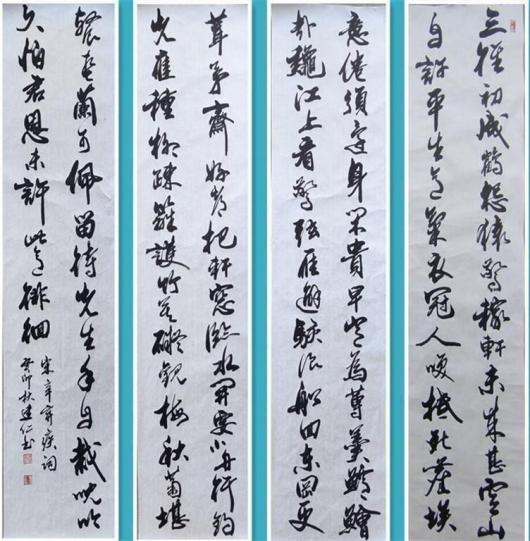 三徑初成鶴怨猿驚稼軒未來甚雲山
自許平生意氣衣冠人咲抵死塵埃
意倦須還身閑貴早豈為蓴羹鱸鱠
哉龝江上看驚弦雁避駭浪船回東岡更
葺茅齋好都把軒窗臨水開要小舟行釣
先應種柳疎籬護竹莫礙觀梅秋菊堪
餐春蘭可佩留待先生手自栽沉吟
久怕君恩未許此意徘徊
宋辛棄疾詞
癸卯秋建仁書